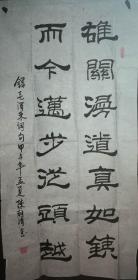 雄關漫道真如銕
而今邁步從頭越
錄毛澤東詞句甲午年孟夏陳